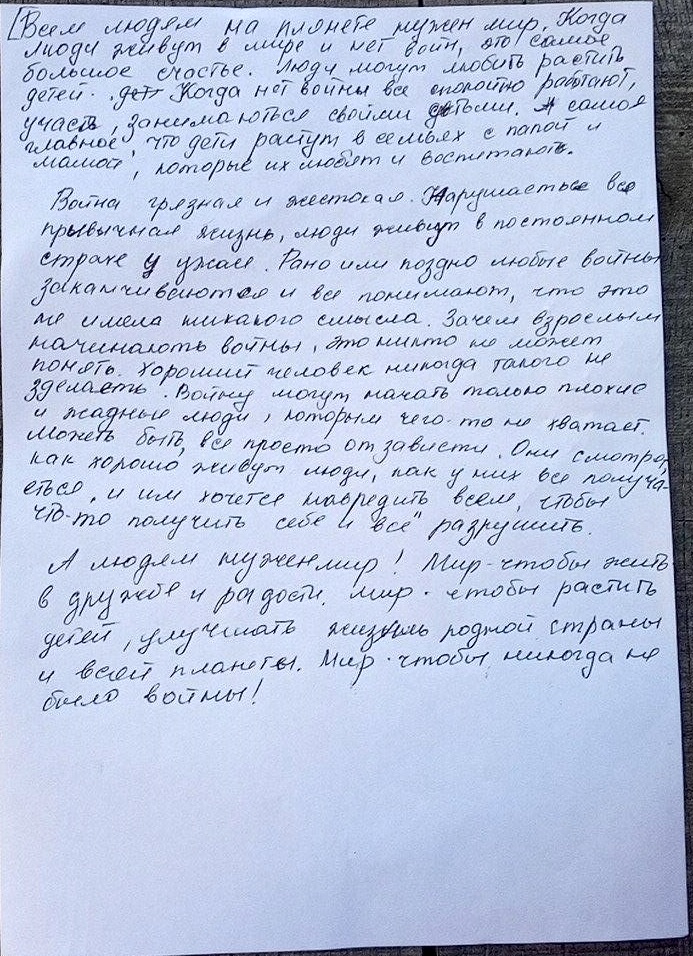 [Всем людям на планете нужен мир. Когда
люди живут в мире и нет войн, это самое
большое счастье. Люди могут любить растить
детей. Когда нет войны все спокойно работают,
участь, занимаються своими детьми. А самое
главное, что дети растут в семьях с папой и
мамой, которые их любят и воспитають.
Война грязная и жестокая. Нарушаеться вся
прывычная жизнь, люди живут в постоянном
страхе и ужасе. Рано или поздно любые войны
заканчиваются и все понимают, что это
не имела никакого смысла. Зачем взрослым
начинають войны, это никто не может
понять. Хороший человек никогда такого не
зделаеть. Войну могут начать только плохие
и жадные люди, которым чего-то не хватает.
Можеть быть, все просто от зависти. Они смотрят,
как хорошо живут люди, как у них все получа-
еться, и им хочется навредить всем, чтобы
что-то получить себе и "всё" разрушить.
А людям нужен мир! Мир-чтобы жить
в дружбе и радости. Мир-чтобы растить
детей, улучшать жизнь родной страны
и всей планеты. Мир-чтобы никогда не
было войны!